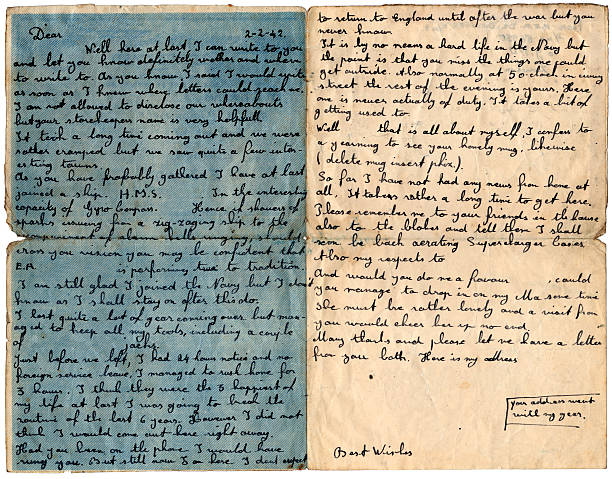 Dear 2-2-42.
Well here at last I can write to you
and let you know definitely mother and where
to write to. As you know, I said I would write
as soon as I knew where letters could reach me.
I am not allowed to disclose our whereabouts
but your storekeepers name is very helpfull
It took a long time coming out and we were
rather cramped but we saw quite a few inter-
esting towns
As you have probably gathered I have at last
joined a ship. H.M.S. In the interesting
capacity of Gyro Compass. Hence if showers of
sparks issuing from a zig-zaging ship to the
cross you vision you may be confident that
E.A. is performing true to tradition.
I am still glad I joined the Navy but I dont
know as I shall stay on after this do.
I lost quite a lot of gear coming over but man-
aged to keep all my tools, including a couple
of jacks.
Just before we left, I had 24 hours notice and no
foreign service leave, I managed to rush home for
3 hours. I think they were the 3 happiest of
my life at last I was going to break the
routine of the last 6 years. However I did not
think I would come out here right away.
Had you been on the phone I would have
rung you. But still now I am here I dont expect
to return to England until after the war but you
never know
It is by no means a hard life in the Navy but
the point is that you miss the things one could
get outside. Also normally at 5 o-clock in civvy
street the rest of the evening is yours. Here
one is never actually of duty. It takes a bit of
getting used to
Well that is all about myself, I confess to
a yearning to see your lovely mug. likewise
(delete mug insert phox).
So far I have not had any news from home at
all. It takes rather a long time to get here.
Please remember me to your friends in the house
also to the blokes and tell them I shall
soon be back aerating Supercharger Cases
Also my respects to
And would you do me a favour , could
you manage to drop in on my Ma some time
She must be rather lonely and a visit from
you would cheer her up no end.
Many thanks and please let me have a letter
from you both. Here is my address
your address went
with my gear.
Best Wishes